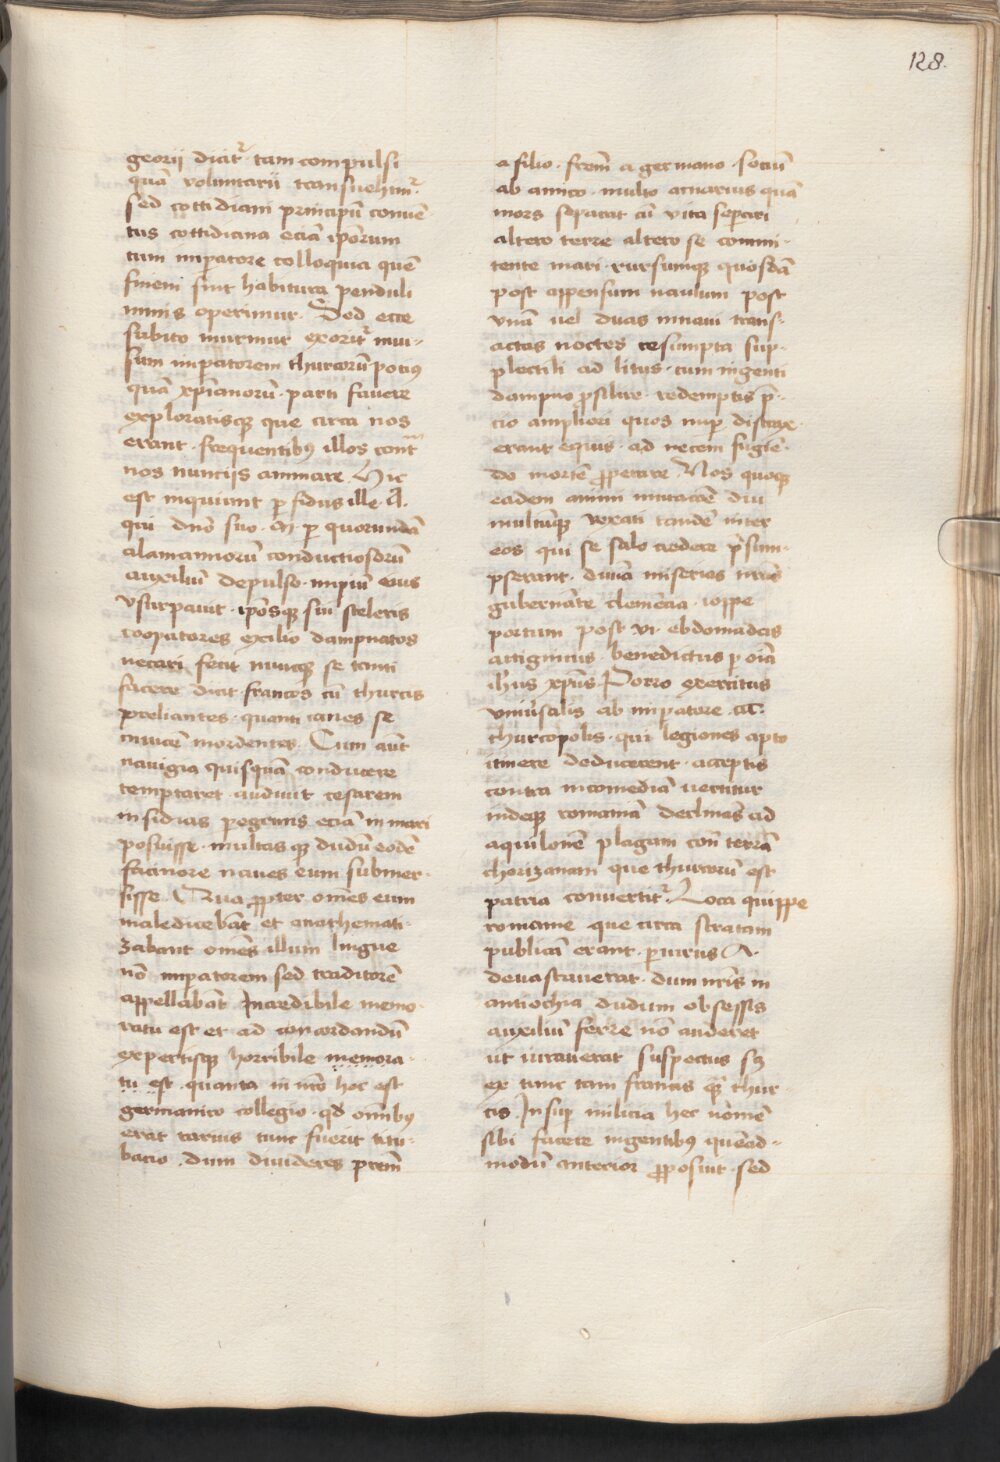 128.
georij dicit᷑ tam compulsi
quā voluntarii transuehimᷣ.
sed cottidiani principū conuē-
tus cottidiana eciā ip̄orum
cum imꝑatore colloquia quē
finem sint habitura penduli
nimis operimur. Sed ecce
subito murmur exorit᷑ inui-
sum imꝑatorem thurcorū pociꝰ
quā xp̄ianorū parti fauere
exploratisqꝫ que circa nos
erant. frequentibꝰ illos cont̃
nos nuncijs animare. Hic
est inquiunt ꝑfidus ille .A.
qui dn̄o suo .M. ꝑ quorundā
alamannorū conductiosorū
auxiliū depulso. imꝑiū eius
vsurpauit. ip̄osqꝫ sui sceleris
cooꝑatores exilio dampnatos
necari fecit nuncqꝫ se tanti
facere dicit francos cū thurcis
preliantes. quanti canes se
inuicē mordentes. Cum aūt
nauigia quisquā conducere
temptaret. audiuit cesarem
insidias ꝑegrinis eciā in mari
posuisse. multasqꝫ dudū eodē
facinore naues eum submer-
sisse. Qua ꝓpter om̄es eum
maledicebāt et anathemati-
zabant om̄es illum lingue
nō imꝑatorem sed traditorē
appellabāt. Incredibile memo-
ratu est et ad concordandū
expertisqꝫ horribile memora-
tu est quanta in nr̄o hoc est
germanico collegio. qd̄ om̄ibꝰ
erat carius tunc fuerit titu-
bacio. dum diuideres pr̄em
a filio. fr̄em a germano. sociū
ab amico. multo amarius quā
mors seꝑarat cū vita seꝑari
altero terre altero se commi-
tente mari. rursumqꝫ quosdā
post appensum naulum post
vnā uel duas in naui trans-
actas noctes resumpta sup-
plectili ad litus. cum ingenti
dampno ꝓsilire. redemptis p̄-
cio ampliori quos nuꝑ distrax-
erant equis. ad necem fugiē-
do mortē ꝓperare. Nos quoqꝫ
eadem animi mutacōe diu
multūqꝫ vexati tandē inter
eos qui se salo credere p̄sum-
pserant. diuīa miserias nr̄as
gubernāte clemēcia. ioppe
portum post vi. ebdomadas
attigimus. benedictus ꝑ oīa
ih̄us xp̄us. Porro exercitus
vniūsalis ab imꝑatore .a.
thurcopolis. qui legiones apto
itinere deducerent. acceptis
contra nicomediā uertitur
indeqꝫ romaniā declinās ad
aquilonē plagam con̄ terrā
chorizanam que thurcorū est
patria conuertit᷑. Loca quippe
romanie que circa stratam
publicā erant. ꝑiurus .A.
deuastauerat. dum nr̄is in
antiochia dudum obsessis
auxiliū ferre nō auderet
ut iurauerat suspectus sꝫ
ex tunc tam francis quā thur-
cis. Insuꝑ milicia hec nōmē
sibi facere in gentibꝰ quēad-
modū anterior ꝓposuit. sed